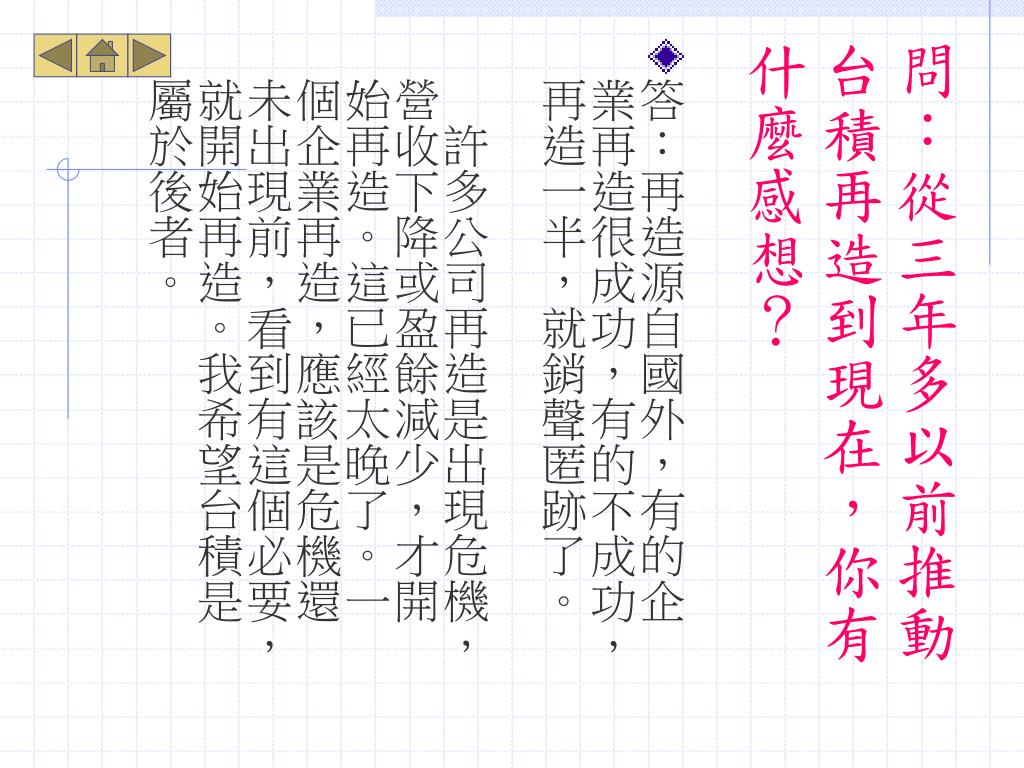 問：從三年多以前推動
台積再造到現在，你有
什麼感想？
答：再造源自國外，有的企
業再造很成功，有的不成功，
再造一半，就銷聲匿跡了。
許多公司再造是出現危機，
營收下降或盈餘減少，才開
始再造。這已經太晚了。一
個企業再造，應該是危機還
未出現前，看到有這個必要，
就開始再造。我希望台積是
屬於後者。